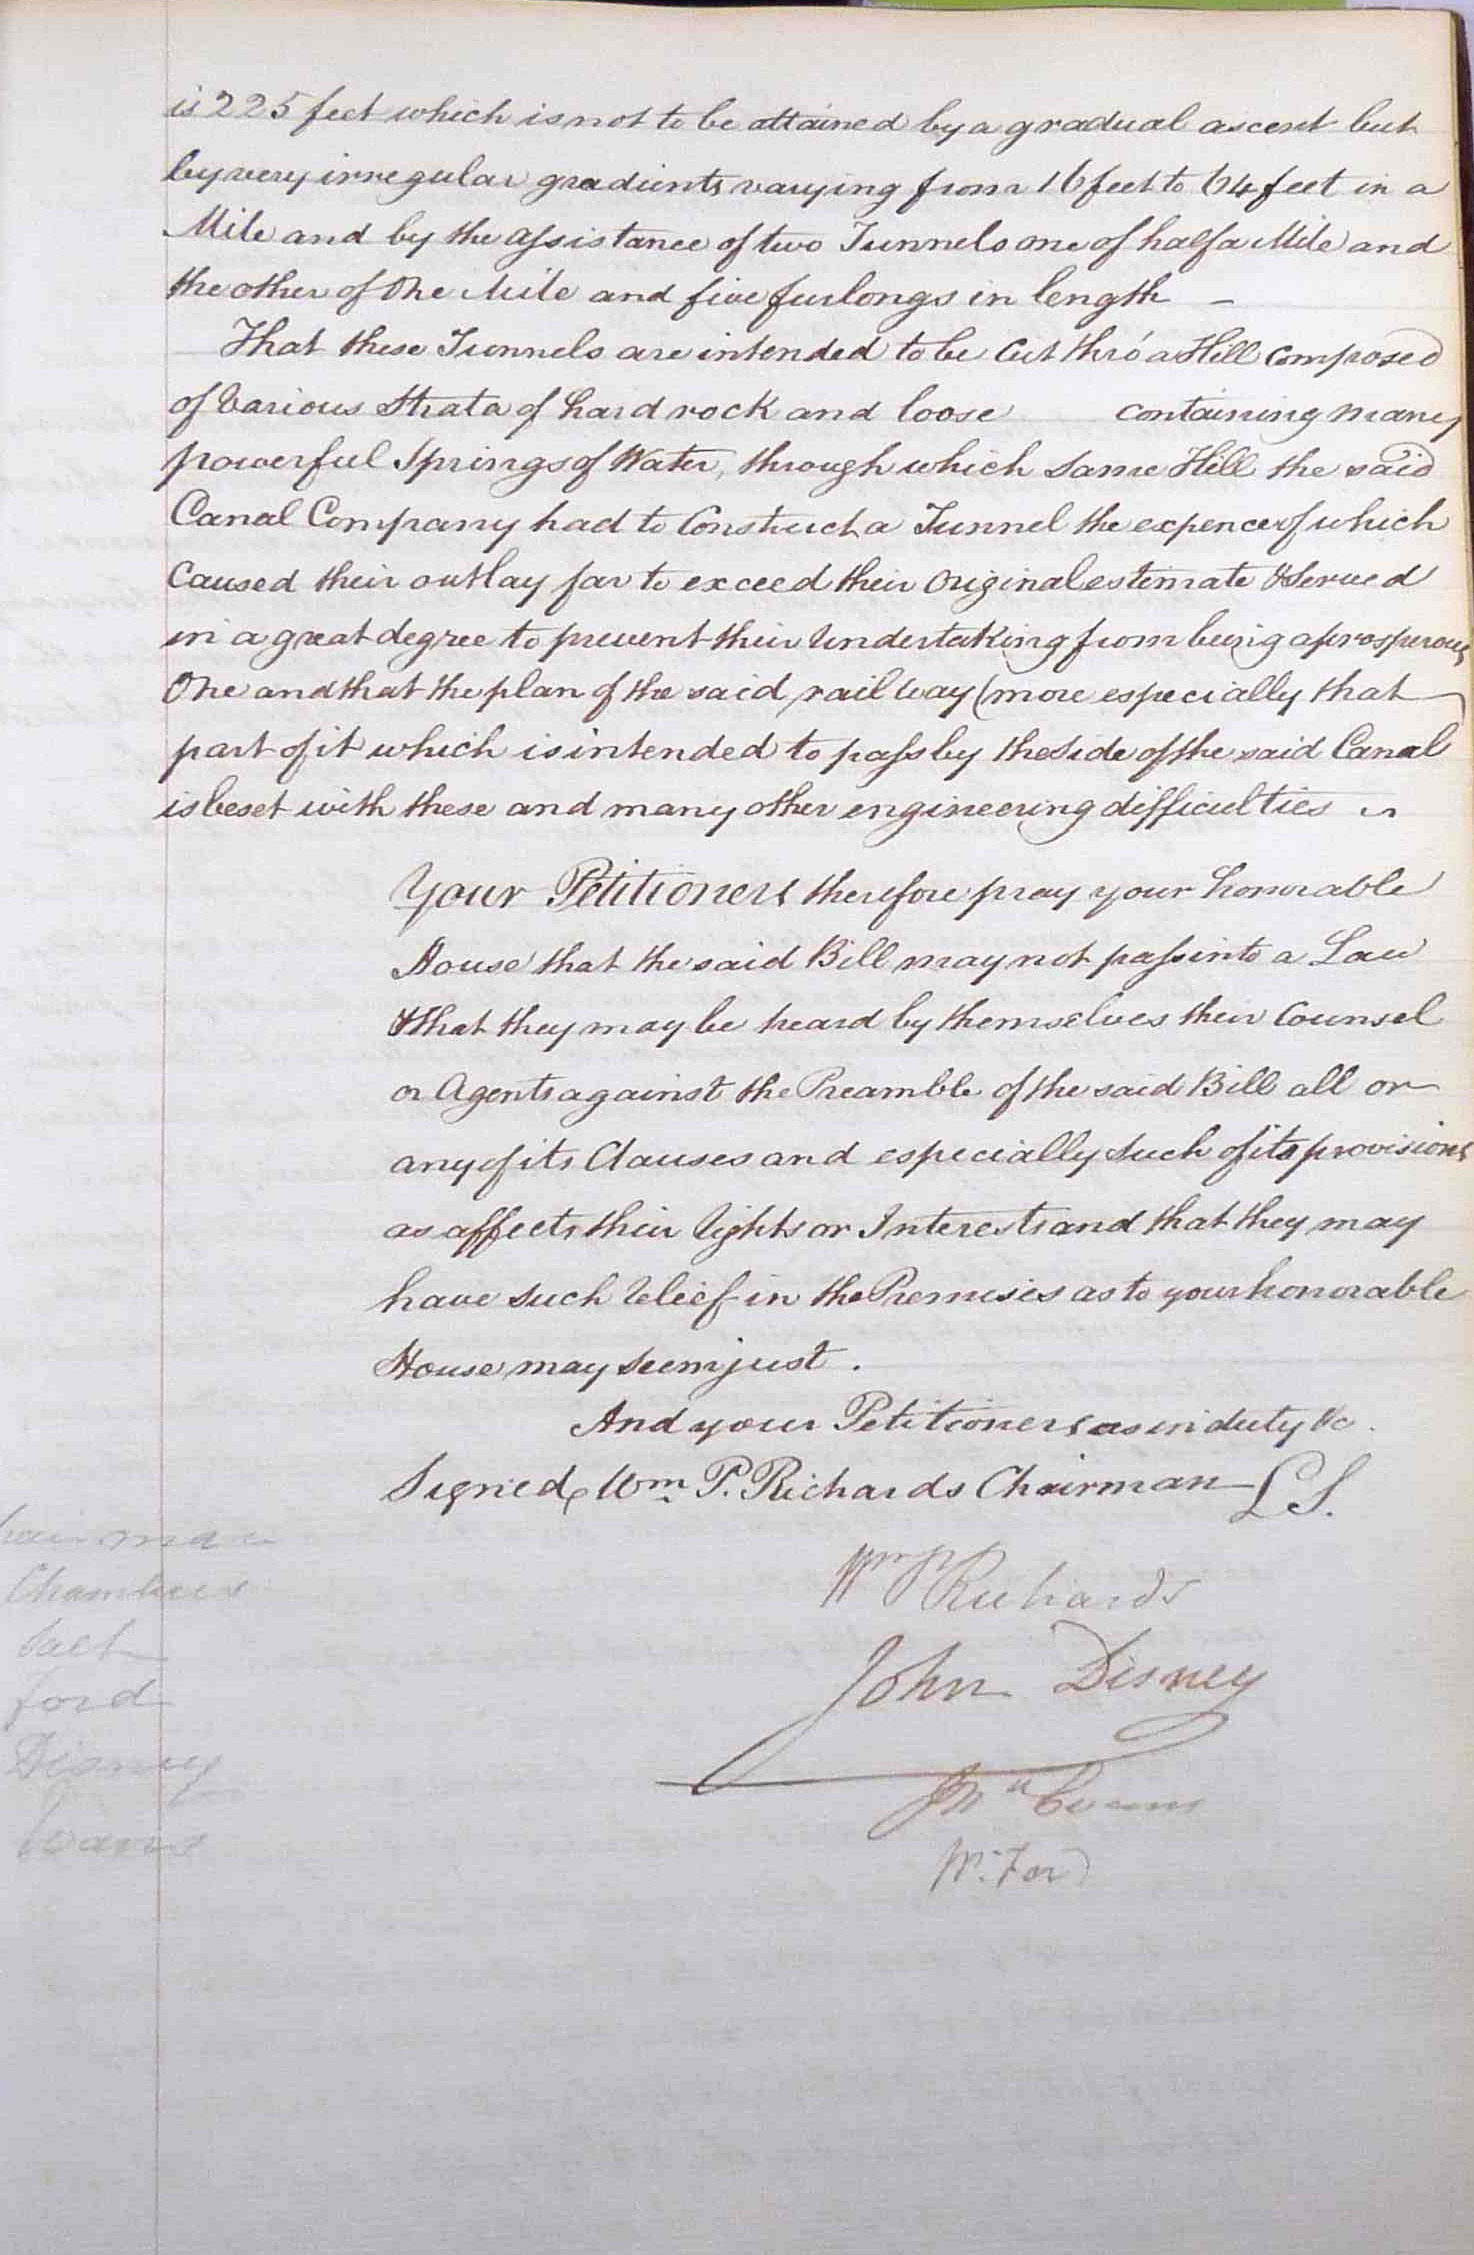 is 225 feet which is not to be attained by a gradual ascent but
by very irregular gradients varying from 16 feet to 64 feet in a
Mile and by the assistance of two Tunnels one of half a Mile and
the other of One Mile and five furlongs in length –
That these Tunnels are intended to be Cut thro' a Hill composed
of Various Strata of hard rock and loose containing many
powerful Springs of Water, through which same Hill the said
Canal Company had to Construct a Tunnel the expence of which
Caused their outlay far to exceed their Original estimate & Served
in a great degree to prevent their Undertaking from being a prosperous
One and that the plan of the said rail way (more especially that
part of it which is intended to pass by the Side of the said Canal
is beset with these and many other engineering difficulties ~
Your Petitioners therefore pray your honorable
House that the said Bill may not pass into a Law
& that they may be heard by themselves their Counsel
or Agents against the Preamble of the said Bill all or
any of its Clauses and especially Such of its provisions
as affects their Rights or Interests and that they may
have such Relief in the Premises as to your honorable
House may Seem just.
And your Petitioners as in duty &c.
Signed, Wm. P. Richards Chairman L S.
Wm P Richards
John Disney
Evans
W. Ford
Chairman
Chambers
Ford
Disney
Evans